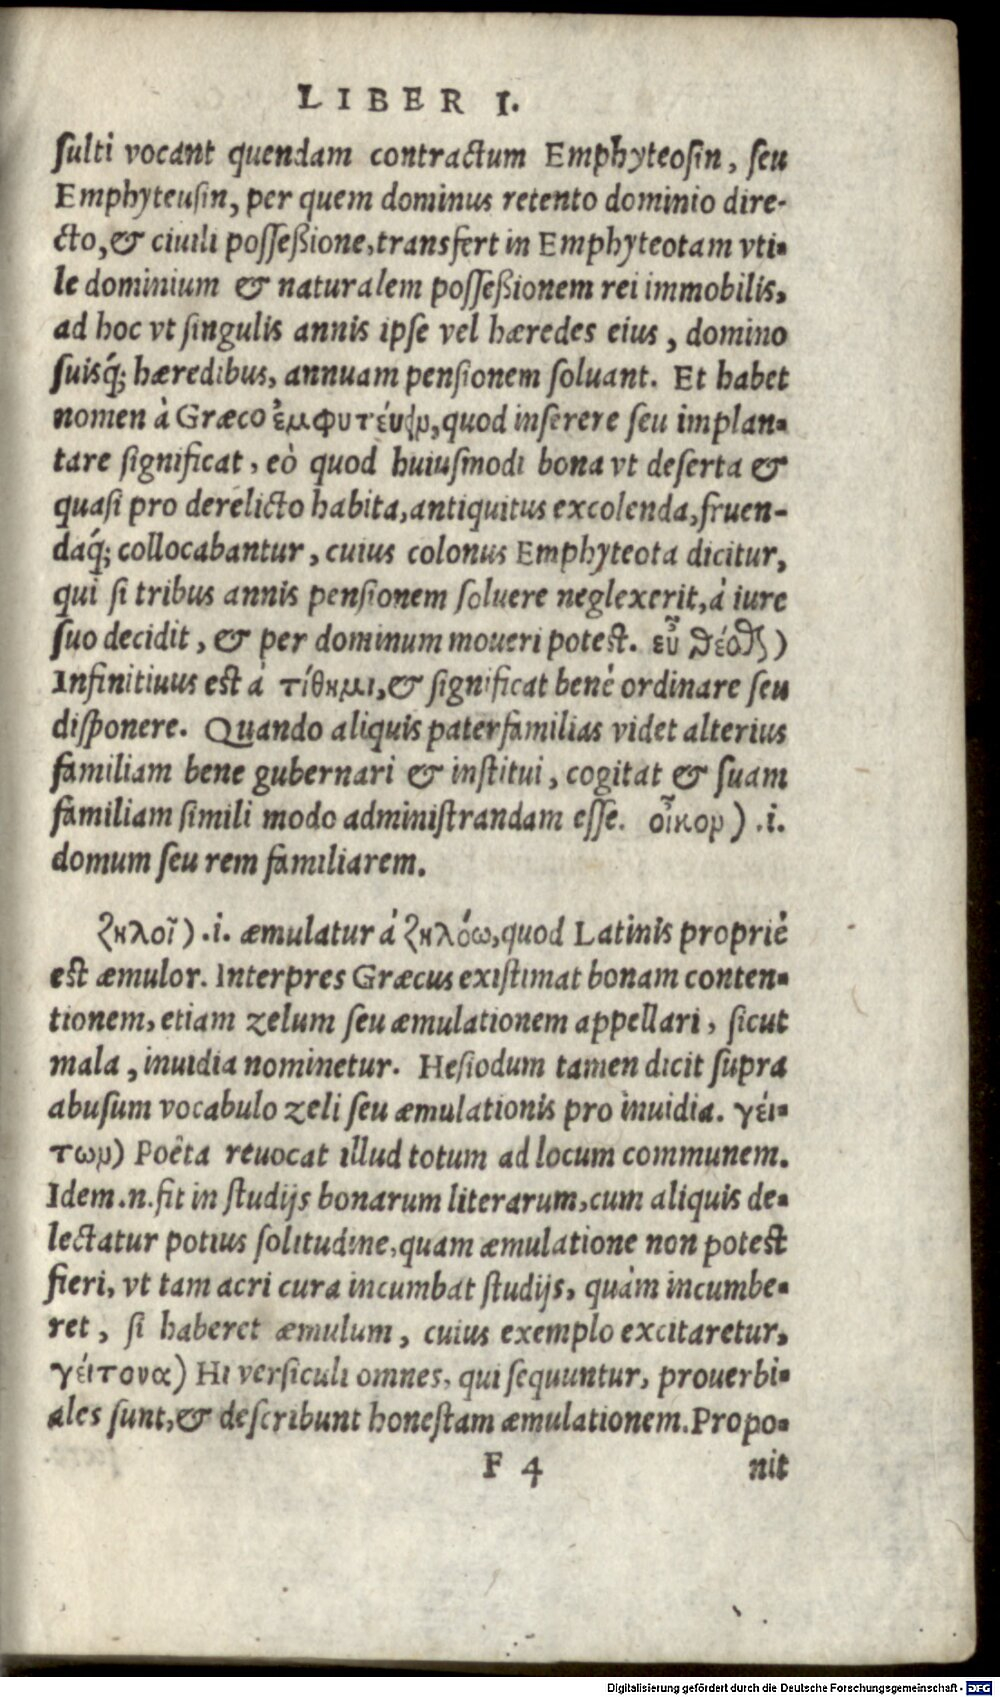 LIBER I.
ſulti vocant quendam contractum Emphyteoſin, ſeu
Emphyteuſin, per quem dominus retento dominio dire-
cto, & ciuili poſſeßione, transfert in Emphyteotam vti-
le dominium & naturalem poſſeßionem rei immobilis,
ad hoc vt ſingulis annis ipſe vel hæredes eius, domino
suisq́; hæredibus, annuam penſionem ſoluant. Et habet
nomen à Græco ἐμφυτέυειν, quod inſerere ſeu implan-
tare ſignificat, eò quod huiuſmodi bona vt deſerta &
quaſi pro derelicto habita, antiquitus excolenda, fruen-
daq́; collocabantur, cuius colonus Emphyteota dicitur,
qui ſi tribus annis penſionem ſoluere neglexerit, à iure
ſuo decidit, & per dominum moueri poteſt. εὖ θέσθαι)
Infinitiuus eſt à τίθημι, & ſignificat benè ordinare ſeu
diſponere. Quando aliquis paterfamilias videt alterius
familiam bene gubernari & inſtitui, cogitat & ſuam
familiam simili modo adminiſtrandam eſſe. οἶκον) .i.
domum ſeu rem familiarem.
ζηλοῖ) .i. æmulatur à ζηλόω, quod Latinis propriè
eſt æmulor. Interpres Græcus exiſtimat bonam conten-
tionem, etiam zelum ſeu æmulationem appellari, ſicut
mala, inuidia nominetur. Heſiodum tamen dicit ſupra
abuſum vocabulo zeli ſeu æmulationis pro inuidia. γέι-
των) Poêta reuocat illud totum ad locum communem.
Idem .n. fit in ſtudijs bonarum literarum, cum aliquis de-
lectatur potius ſolitudine, quam æmulatione non poteſt
fieri, vt tam acri cura incumbat ſtudijs, quàm incumbe-
ret, ſi haberet æmulum, cuius exemplo excitaretur,
γέιτονα) Hi verſiculi omnes, qui ſequuntur, prouerbi-
ales ſunt, & deſcribunt honeſtam æmulationem. Propo-
F 4 nit
Digitalisierung gefördert durch die Deutsche Forschungsgemeinschaft - DFG